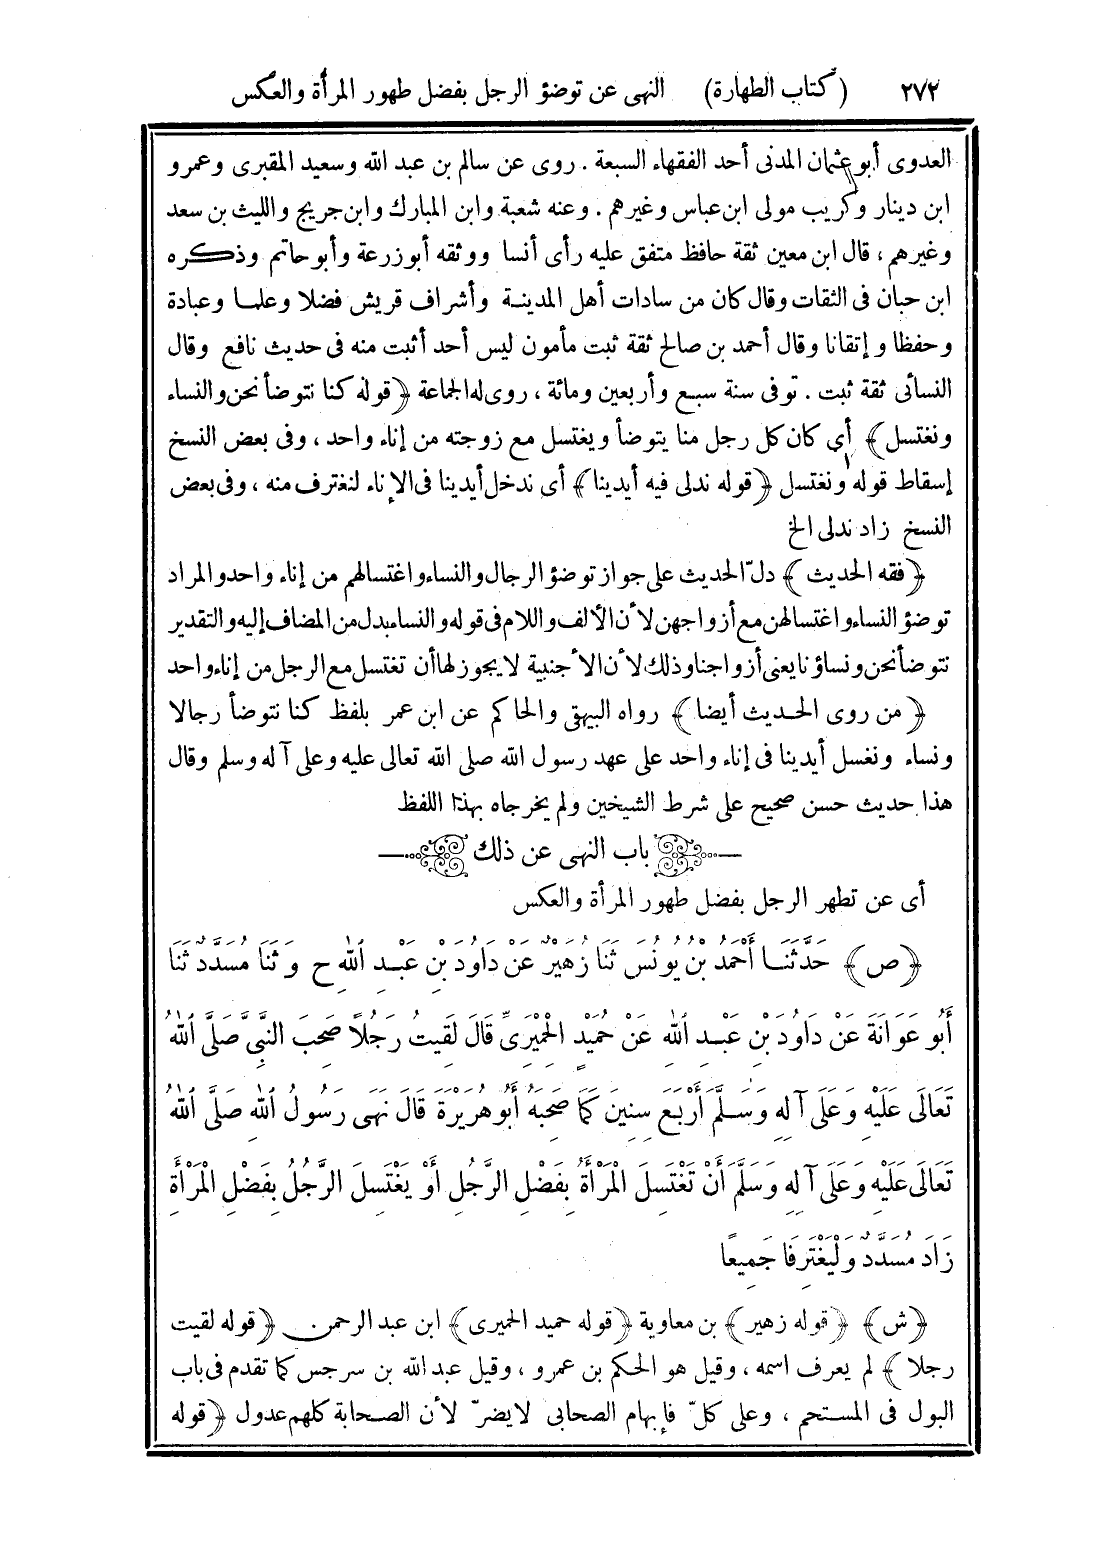 ٢٧٢ (كتاب الطهارة) النهى عن توضؤ الرجل بفضل طهور المرأة والعكس
العدوى أبو عثمان المدنى أحد الفقهاء السبعة . روى عن سالم بن عبد الله وسعيد المقبرى وعمرو
ابن دينار وكريب مولى ابن عباس وغيرهم . وعنه شعبة وابن المبارك وابن جريج والليث بن سعد
وغيرهم ، قال ابن معين ثقة حافظ متفق عليه رأى أنسا ووثقه أبو زرعة وأبو حاتم وذكره
ابن حبان فى الثقات وقال كان من سادات أهل المدينة وأشراف قريش فضلا وعلما وعبادة
وحفظا وإتقانا وقال أحمد بن صالح ثقة ثبت مأمون ليس أحد أثبت منه فى حديث نافع وقال
النسائى ثقة ثبت . توفى سنة سبع وأربعين ومائة ، روى له الجماعة ﴿قوله كنا نتوضأ نحن والنساء
ونغتسل﴾ أى كان كل رجل منا يتوضأ ويغتسل مع زوجته من إناء واحد ، وفى بعض النسخ
إسقاط قوله ونغتسل ﴿قوله ندلى فيه أيدينا﴾ أى ندخل أيدينا فى الإناء لنغترف منه ، وفى بعض
النسخ زاد ندلى الخ
﴿فقه الحديث﴾ دلّ الحديث على جواز توضؤ الرجال والنساء واغتسالهم من إناء واحد والمراد
توضؤ النساء واغتسالهن مع أزواجهن لأن الألف واللام فى قوله والنساء بدل من المضاف إليه والتقدير
نتوضأ نحن ونساؤنا يعنى أزواجنا وذلك لأن الأجنبية لا يجوز لها أن تغتسل مع الرجل من إناء واحد
﴿من روى الحديث أيضا﴾ رواه البيهقى والحاكم عن ابن عمر بلفظ كنا نتوضأ رجالا
ونساء ونغسل أيدينا فى إناء واحد على عهد رسول الله صلى الله تعالى عليه وعلى آله وسلم وقال
هذا حديث حسن صحيح على شرط الشيخين ولم يخرجاه بهذا اللفظ
باب النهى عن ذلك
أى عن تطهر الرجل بفضل طهور المرأة والعكس
﴿ص﴾ حَدَّثَنَا أَحْمَدُ بْنُ يُونُسَ ثَنَا زُهَيْرٌ عَنْ دَاوُدَ بْنِ عَبْدِ اللهِ ح وَثَنَا مُسَدَّدٌ ثَنَا
أَبُو عَوَانَةَ عَنْ دَاوُدَ بْنِ عَبْدِ اللهِ عَنْ حُمَيْدٍ الْحِمْيَرِىِّ قَالَ لَقِيتُ رَجُلًا صَحِبَ النَّبِىَّ صَلَّى اللهُ
تَعَالَى عَلَيْهِ وَعَلَى آلِهِ وَسَلَّمَ أَرْبَعَ سِنِينَ كَمَا صَحِبَهُ أَبُو هُرَيْرَةَ قَالَ نَهَى رَسُولُ اللهِ صَلَّى اللهُ
تَعَالَى عَلَيْهِ وَعَلَى آلِهِ وَسَلَّمَ أَنْ تَغْتَسِلَ الْمَرْأَةُ بِفَضْلِ الرَّجُلِ أَوْ يَغْتَسِلَ الرَّجُلُ بِفَضْلِ الْمَرْأَةِ
زَادَ مُسَدَّدٌ وَلْيَغْتَرِفَا جَمِيعًا
﴿ش﴾ ﴿قوله زهير﴾ بن معاوية ﴿قوله حميد الحميرى﴾ ابن عبد الرحمن . ﴿قوله لقيت
رجلا﴾ لم يعرف اسمه ، وقيل هو الحكم بن عمرو ، وقيل عبد الله بن سرجس كما تقدم فى باب
البول فى المستحم ، وعلى كلّ فإبهام الصحابى لا يضرّ لأن الصحابة كلهم عدول ﴿قوله